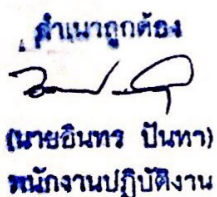 สำเนาถูกต้อง
(นายอินทร ปันทา)
พนักงานปฏิบัติงาน